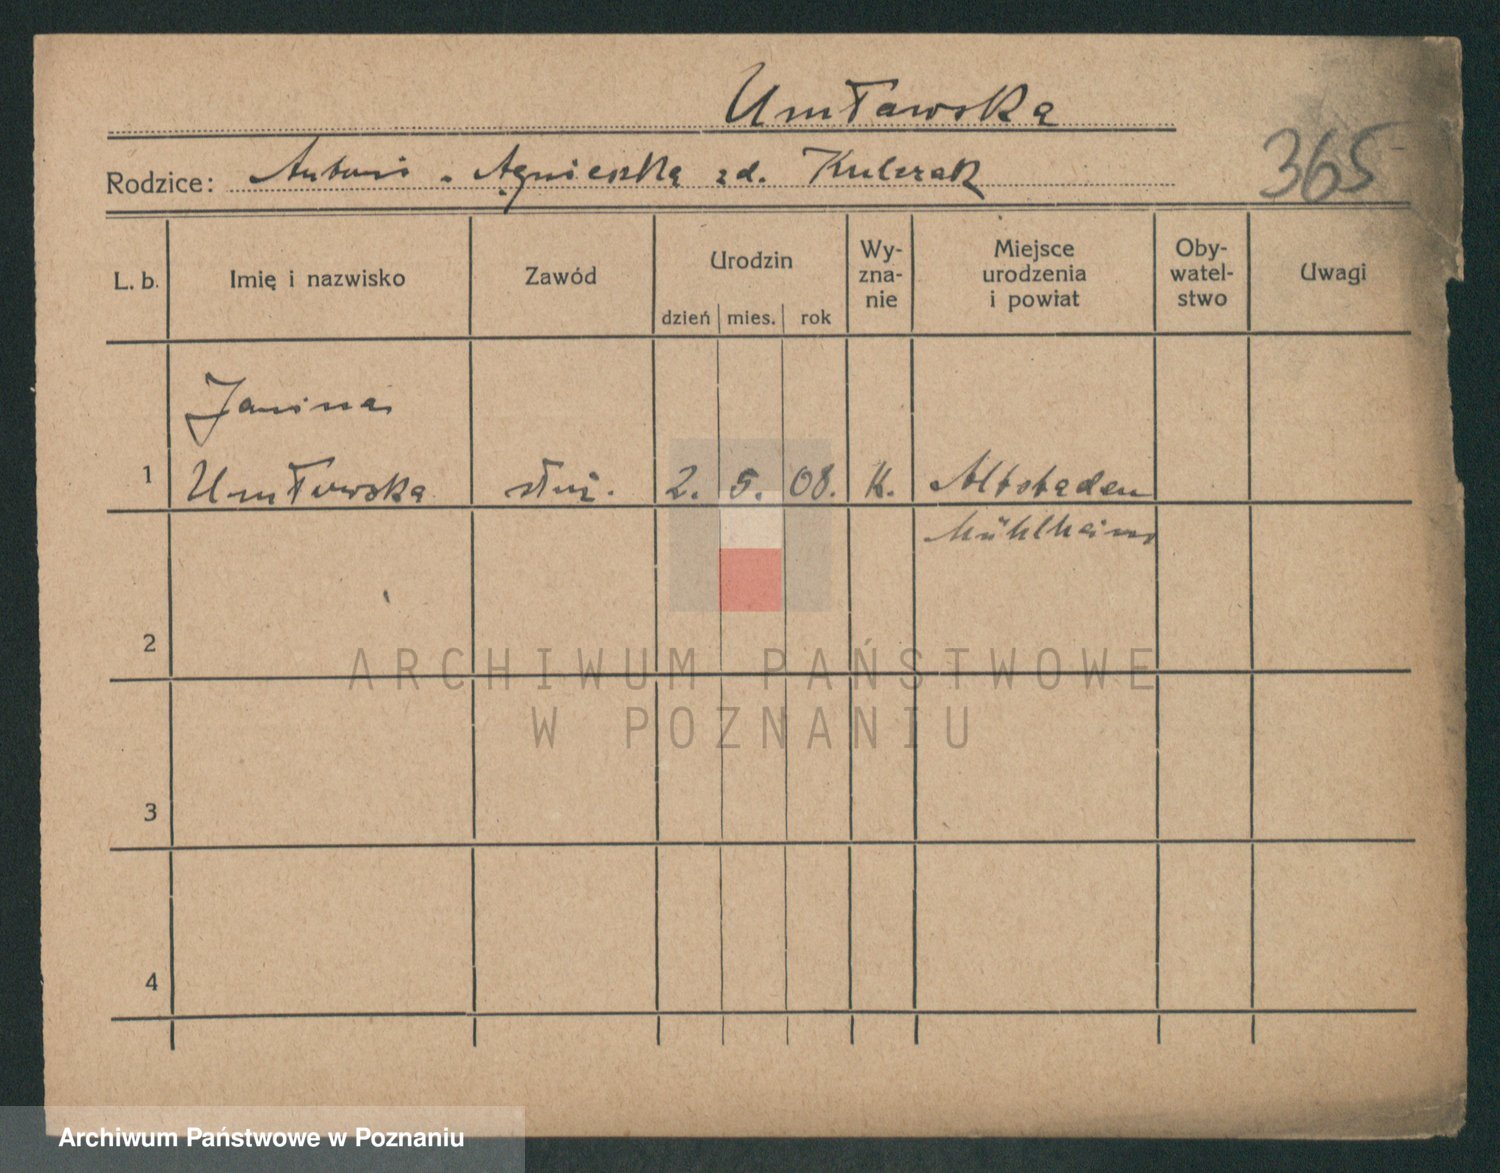 Umławska
365
Rodzice: Antoni - Agnieszka zd. Kulczak
L. b.
Imię i nazwisko
Zawód
Urodzin
dzień mies. rok
Wy-
zna-
nie
Miejsce
urodzenia
i powiat
Oby-
watel-
stwo
Uwagi
Janina
1 Umławska służ. 2. 5. 08. K. Altstaden
Mühlheim
2
ARCHIWUM PAŃSTWOWE
W POZNANIU
3
4
Archiwum Państwowe w Poznaniu